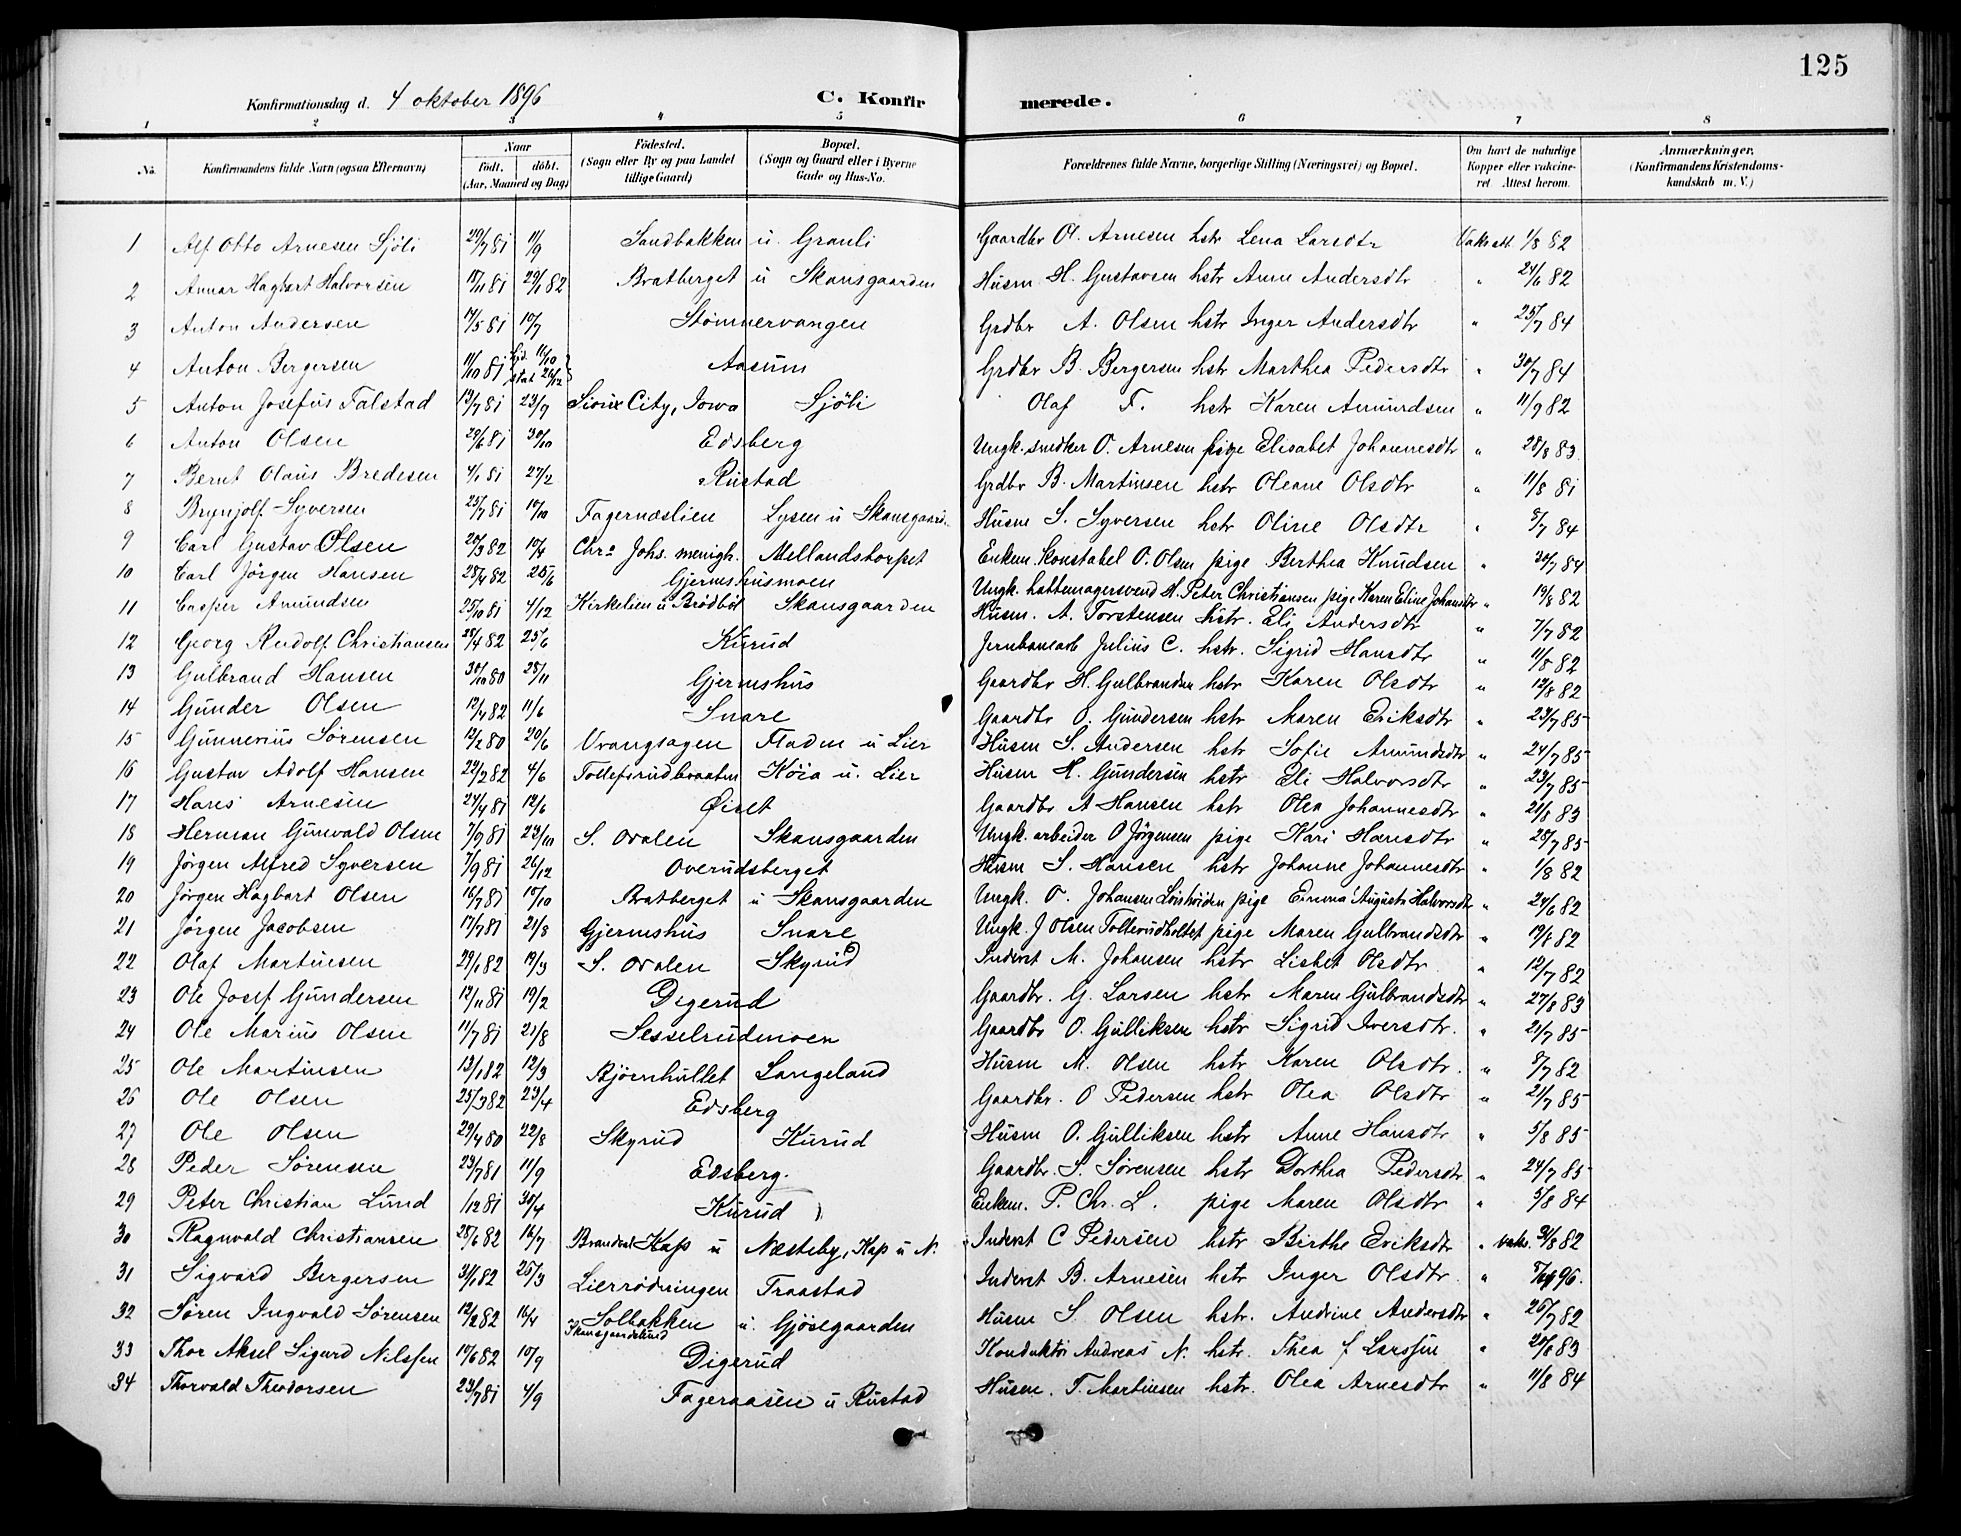 125
Konfirmationsdag d. 4 oktober 1896 C. Konfirmerede.
1 2 3 4 5 6 7 8
No. Konfirmandens fulde Navn (ogsaa Efternavn) Naar födt. döbt. (Aar, Maaned og Dag) Födested. (Sogn eller By og paa Landet tillige Gaard) Bopæl. (Sogn og Gaard eller i Byerne Gade og Hus-No. Forældrenes fulde Navne, borgerlige Stilling (Næringsvei) og Bopæl. Om havt de naturlige Kopper eller vakcineret. Attest herom. Anmærkninger. (Konfirmandens Kristendomskundskab m. V.)
1 Alf Otto Arnesen Sjöli 29/7 81 11/9 Sandbakken u. Granli Gaardbr Ol. Arnesen hstr Lena Larsdtr Vaks att 1/8 82
2 Annar Hagbart Halvorsen 15/11 81 29/1 82 Bratberget u Skansgaarden Husm H. Gustavsen hstr Anne Andersdtr " 24/6 82
3 Anton Andersen 14/5 81 10/7 Stömnervangen Grdbr A. Olsen hstr Inger Andersdtr " 25/7 84
4 Anton Bergersen 11/10 81 hjd. 11/10 stat 26/12 Aasum Grdbr B. Bergersen hstr Marthea Pedersdtr " 30/7 84
5 Anton Josefus Falstad 13/7 81 23/9 Sioux City, Iowa Sjöli Olaf F. hstr Karen Amundsen " 11/9 82
6 Anton Olsen 20/6 81 30/10 Edsberg Ungk. snedker O. Arnesen pige Elisabet Johannesdtr " 28/8 83
7 Bernt Olaus Bredesen 4/1 81 27/2 Rustad Grdbr B. Martinsen hstr Oleane Olsdtr " 11/8 81
8 Brynjolf Syversen 25/7 81 16/10 Fagernæslien Lysen u Skansgaard. Husm S. Syversen hstr Oline Olsdtr " 8/7 84
9 Carl Gustav Olsen 20/3 82 10/4 Chra Johs. menigh. Mellandstorpet Enkem. Konstabel O. Olsen pige Berthea Knudsen " 30/7 84
10 Carl Jörgen Hansen 28/4 82 25/6 Gjermshusmoen Ungk. hattemagersvend H. Peter Christiansen pige Karen Eline Johansdtr " 19/8 82
11 Casper Amundsen 25/10 81 4/12 Kirkelien u Brödböl Skansgaarden Husm. A. Torstensen hstr. Eli Andersdtr " 7/7 82
12 Georg Rudolf Christiansen 28/4 82 25/6 Kurud Jernbanearb Julius C. hstr. Sigrid Hansdtr " 11/8 82
13 Gulbrand Hansen 30/10 80 28/11 Gjermshus Gaardbr H. Gulbrandsen hstr Karen Olsdtr " 12/8 82
14 Gunder Olsen 12/4 82 11/6 Snare Gaardbr O. Gundersen hstr Maren Eriksdtr " 23/7 85
15 Gunnerius Sörensen 12/2 80 20/6 Vrangsagen Fladen u Lier Husm S. Andersen hstr Sofie Amundsdtr " 24/7 85
16 Gustav Adolf Hansen 22/2 82 4/6 Tollefsrudbraaten Köia u. Lier Husm H. Gundersen hstr Eli Halvorsdtr " 23/7 85
17 Hans Arnesen 24/4 81 12/6 Øiset Gaardbr A Hansen hstr Olea Johannesdtr " 21/8 83
18 Herman Gunvald Olsen 7/9 81 23/10 S. Ovalen Skansgaarden Ungk. arbeider O Jörgensen pige Kari Hansdtr " 28/7 85
19 Jörgen Alfred Syversen 7/9 81 26/12 Overudsberget Husm S. Hansen hstr Johanne Johannesdtr " 1/8 82
20 Jörgen Hagbart Olsen 16/7 81 15/10 Bratberget u Skansgaarden Ungk. O. Johansen pige Emma Augusta Halvorsdtr " 24/6 82
21 Jörgen Jacobsen 17/7 81 21/8 Gjermshus Snare Ungk. J Olsen Tollerudholtet pige Maren Gulbrandsdtr " 19/8 82
22 Olaf Martinsen 29/1 82 19/3 S. Ovalen Skyrud Inderst M. Johansen hstr Lisbet Olsdtr " 12/7 82
23 Ole Josef Gundersen 13/11 81 19/2 Digerud Gaardbr. G. Larsen hstr Maren Gulbrandsdtr " 27/8 83
24 Ole Marius Olsen 11/7 81 21/8 Sesselrudmoen Gaardbr O. Gulliksen hstr Sigrid Iversdtr. " 21/7 85
25 Ole Martinsen 13/1 82 12/3 Björnhullet Langeland Husm M. Olsen hstr Karen Olsdtr. " 8/7 82
26 Ole Olsen 25/3 82 23/4 Edsberg Gaardbr. O Pedersen hstr Olea Olsdtr " 21/7 85
27 Ole Olsen 29/4 80 22/8 Skyrud Kurud Husm O. Gulliksen hstr Anne Hansdtr " 5/8 85
28 Peder Sörensen 23/7 81 11/9 Edsberg. Gaardbr. S. Sörensen hstr Dorthea Pedersdtr " 24/7 85
29 Peter Christian Lund 1/12 81 30/4 Kurud Enkem. P. Chr. L. pige Maren Olsdtr " 5/8 84
30 Ragnvald Christiansen 28/6 82 16/7 Brandval Kap u Næsteby, Kap u N. Inderst C Pedersen hstr Birthe Eriksdtr " vaks. 31/8 82
31 Sigvard Bergersen 31/1 82 26/3 Lierrödningen Traastad Inderst B. Arnesen hstr Inger Olsdtr " 96.
32 Sören Ingvald Sörensen 12/2 82 16/4 Solbakken u. Gjösegaarden Husm S. Olsen hstr. Andrine Andersdtr " 26/7 82
33 Thor Aksel Sigurd Nilssen 19/6 82 10/9 Digerud Konduktör Andreas N. hstr. Thea f Larssen " 20/8 83
34 Thorvald Theodorsen 23/7 81 4/9 Fageraasen u Rustad Husm. T. Martinsen hstr. Olea Arnesdtr " 11/8 84